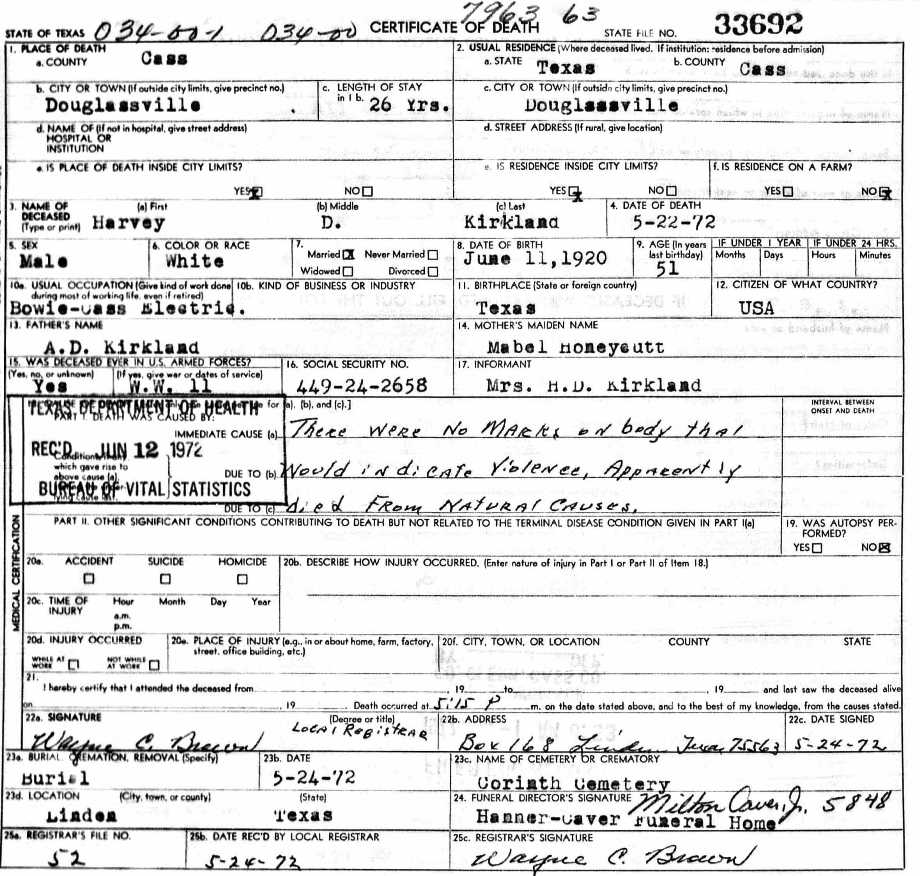 7963 63
STATE OF TEXAS 034-00-1 034-00 CERTIFICATE OF DEATH STATE FILE NO. 33692
1. PLACE OF DEATH
a. COUNTY Cass
2. USUAL RESIDENCE (Where deceased lived. If institution: residence before admission)
a. STATE Texas b. COUNTY Cass
b. CITY OR TOWN (If outside city limits, give precinct no.)
Douglassville .
c. LENGTH OF STAY
in 1 b. 26 Yrs.
c. CITY OR TOWN (If outside city limits, give precinct no.)
Douglassville
d. NAME OF (If not in hospital, give street address)
HOSPITAL OR
INSTITUTION
d. STREET ADDRESS (If rural, give location)
e. IS PLACE OF DEATH INSIDE CITY LIMITS?
YES☒ NO☐
e. IS RESIDENCE INSIDE CITY LIMITS?
YES☒ NO☐
f. IS RESIDENCE ON A FARM?
YES☐ NO☒
3. NAME OF DECEASED
(Type or print)
(a) First (b) Middle (c) Last
Harvey D. Kirkland
4. DATE OF DEATH
5-22-72
5. SEX
Male
6. COLOR OR RACE
White
7.
Married☒ Never Married☐
Widowed☐ Divorced☐
8. DATE OF BIRTH
June 11,1920
9. AGE (In years
last birthday)
51
IF UNDER 1 YEAR IF UNDER 24 HRS.
Months Days Hours Minutes
10a. USUAL OCCUPATION (Give kind of work done
during most of working life, even if retired)
Bowie-Cass Electric.
10b. KIND OF BUSINESS OR INDUSTRY
11. BIRTHPLACE (State or foreign country)
Texas
12. CITIZEN OF WHAT COUNTRY?
USA
13. FATHER'S NAME
A.D. Kirkland
14. MOTHER'S MAIDEN NAME
Mabel Honeycutt
15. WAS DECEASED EVER IN U.S. ARMED FORCES?
(Yes, no, or unknown) (If yes, give war or dates of service)
Yes W.W. 11
16. SOCIAL SECURITY NO.
449-24-2658
17. INFORMANT
Mrs. H.D. Kirkland
MEDICAL CERTIFICATION
for (a). (b), and (c).]
INTERVAL BETWEEN
ONSET AND DEATH
TEXAS DEPARTMENT OF HEALTH
PART I. DEATH WAS CAUSED BY:
IMMEDIATE CAUSE (a) There were No Marks on body that
REC'D JUN 12 1972
which gave rise to
above cause (a)
DUE TO (b) Would indicate Violence, Apparently
BUREAU OF VITAL STATISTICS
DUE TO (c) died From Natural Causes.
PART II. OTHER SIGNIFICANT CONDITIONS CONTRIBUTING TO DEATH BUT NOT RELATED TO THE TERMINAL DISEASE CONDITION GIVEN IN PART I(a)
19. WAS AUTOPSY PER-
FORMED?
YES☐ NO☒
20a. ACCIDENT SUICIDE HOMICIDE
☐ ☐ ☐
20b. DESCRIBE HOW INJURY OCCURRED. (Enter nature of injury in Part I or Part II of Item 18.)
20c. TIME OF
INJURY
Hour Month Day Year
a.m.
p.m.
20d. INJURY OCCURRED
WHILE AT
WORK ☐
NOT WHILE
AT WORK ☐
20e. PLACE OF INJURY (e.g., in or about home, farm, factory,
street, office building, etc.)
20f. CITY, TOWN, OR LOCATION COUNTY STATE
21.
I hereby certify that I attended the deceased from , 19 to , 19 and last saw the deceased alive
on , 19 . Death occurred at 5:15 P m., on the date stated above, and to the best of my knowledge, from the causes stated.
22a. SIGNATURE (Degree or title)
Wayne C. Brown Local Registrar
22b. ADDRESS
Box 168 Linden Texas 75563
22c. DATE SIGNED
5-24-72
23a. BURIAL, CREMATION, REMOVAL (Specify)
Burial
23b. DATE
5-24-72
23c. NAME OF CEMETERY OR CREMATORY
Corinth Cemetery
23d. LOCATION (City, town, or county) (State)
Linden Texas
24. FUNERAL DIRECTOR'S SIGNATURE Milton Caver, Jr. 5848
Hanner-Caver Funeral Home
25a. REGISTRAR'S FILE NO.
52
25b. DATE REC'D BY LOCAL REGISTRAR
5-24-72
25c. REGISTRAR'S SIGNATURE
Wayne C. Brown